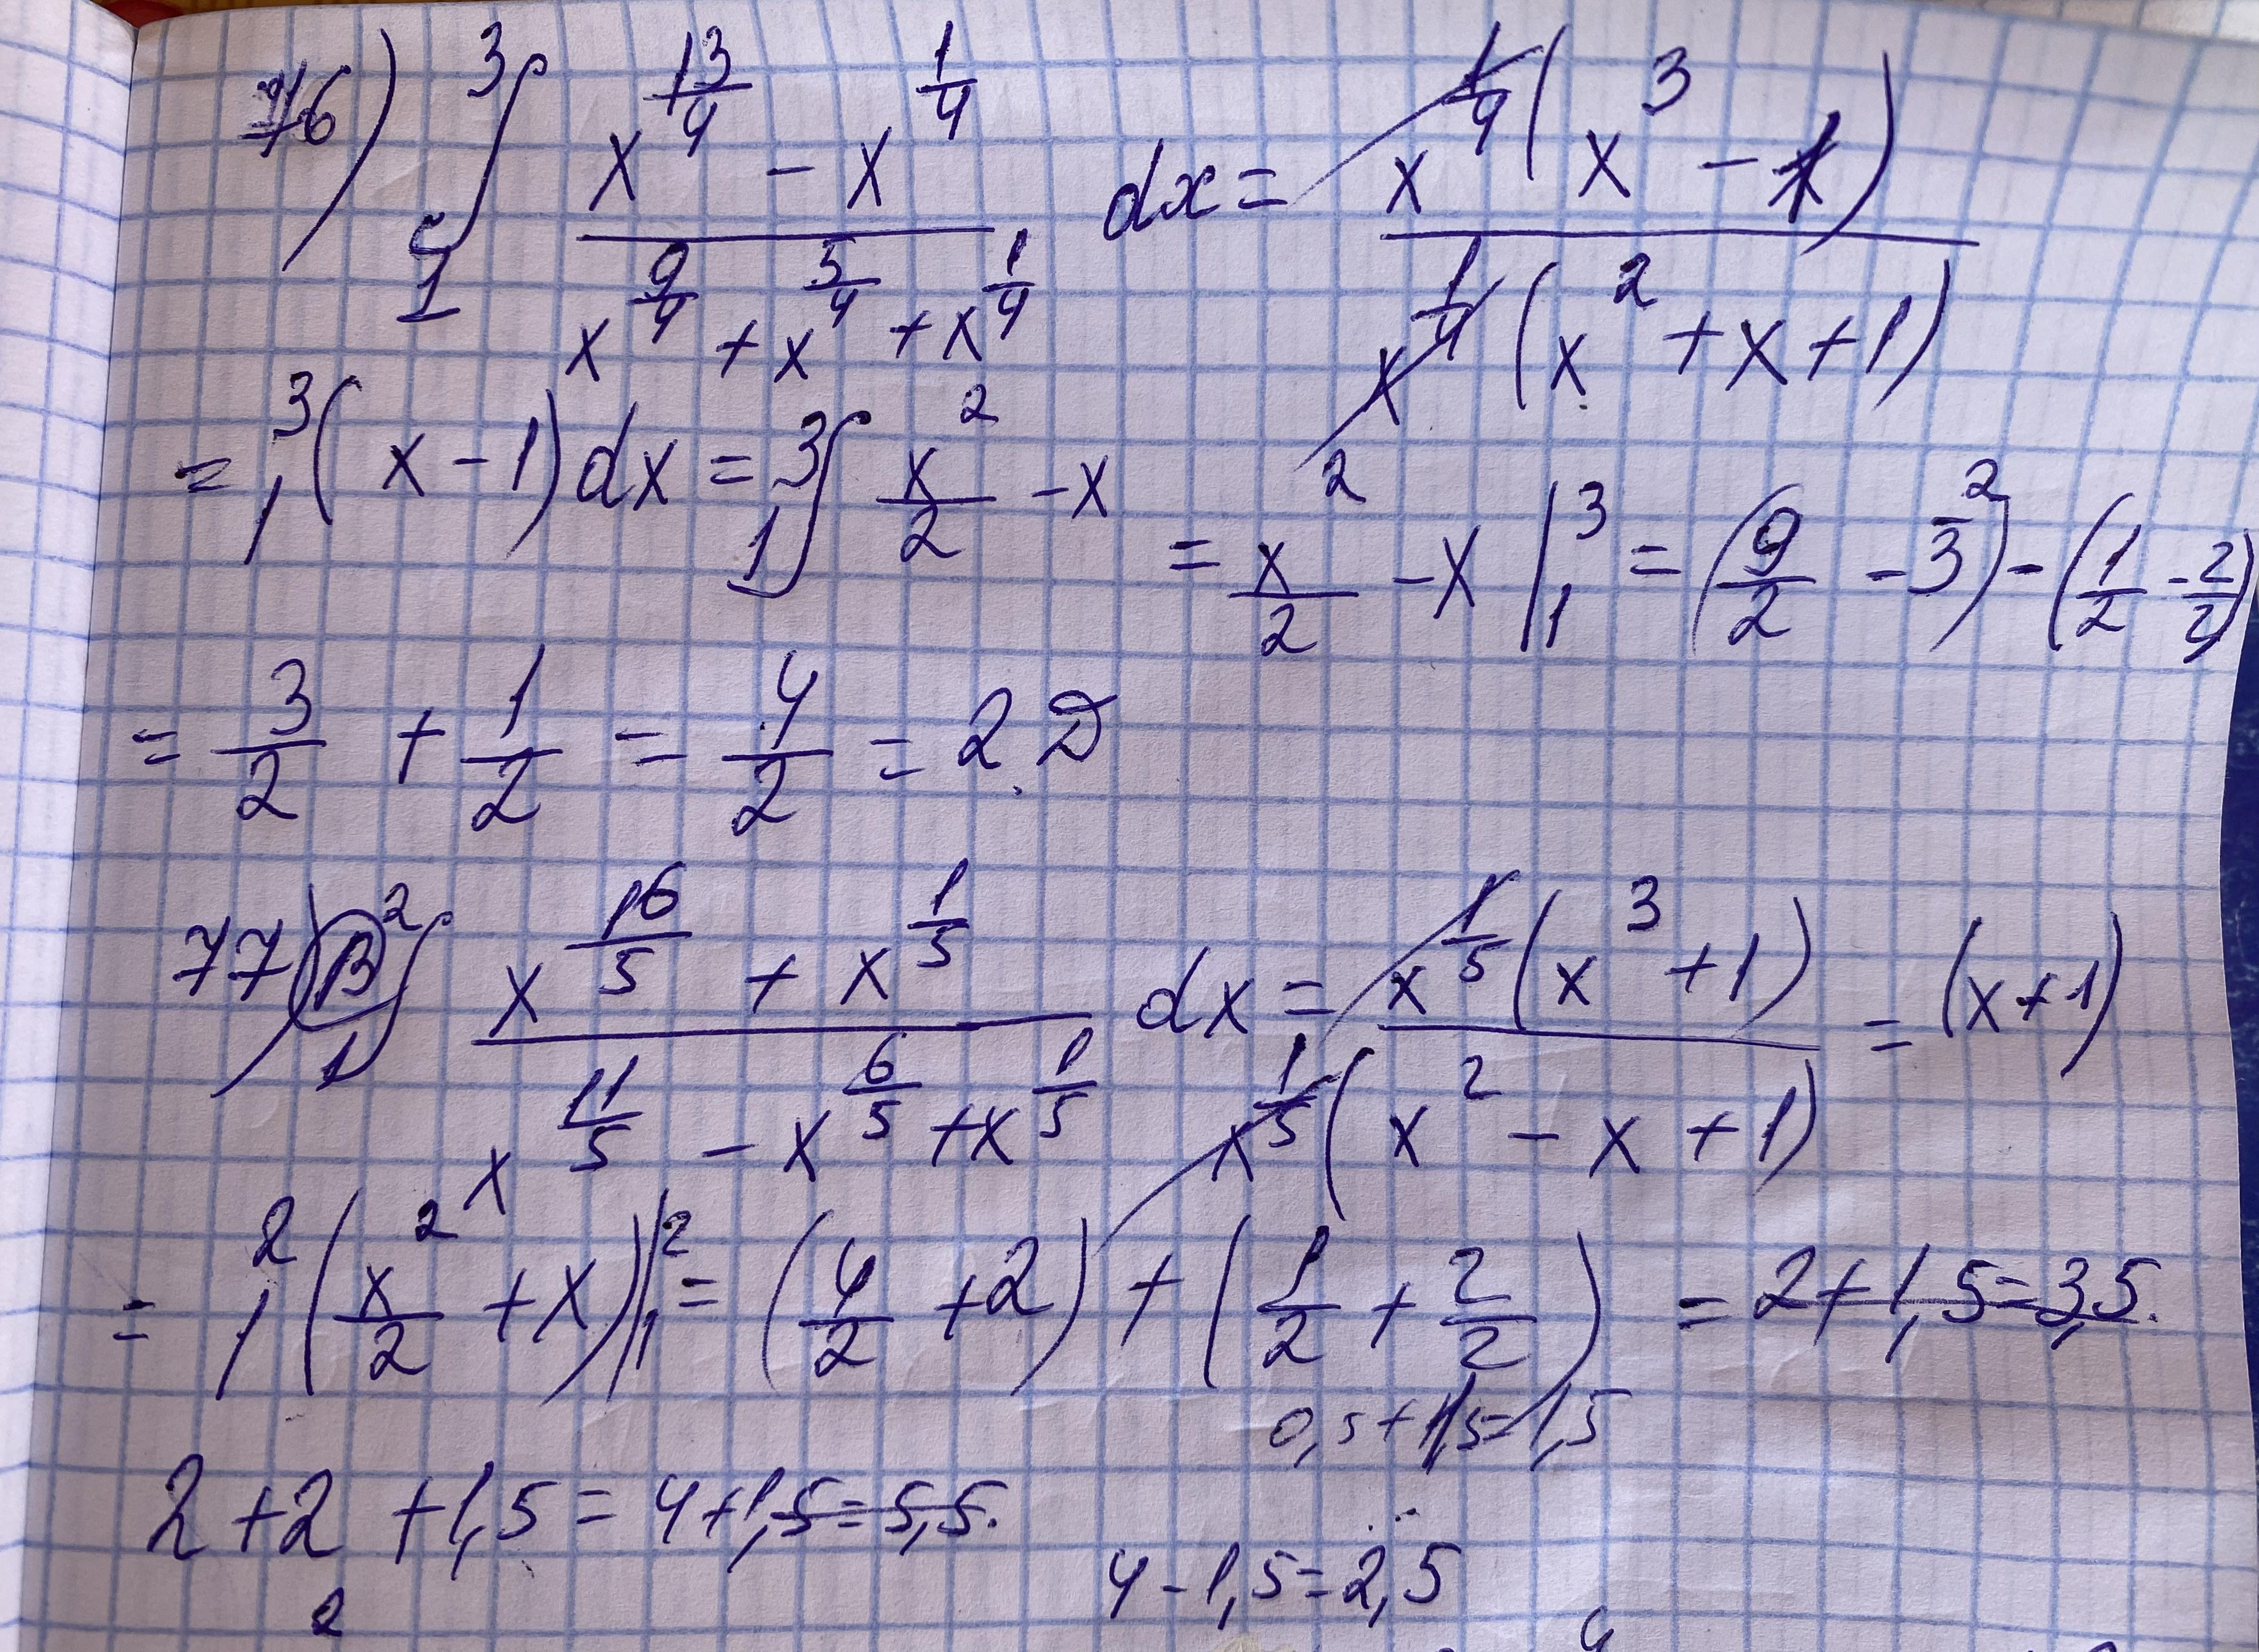 76) ₁³∫ (x^(13/4) - x^(1/4)) / (x^(9/4) + x^(5/4) + x^(1/4)) dx = x^(1/4) (x³ - 1) / x^(1/4) (x² + x + 1)
= ₁³(x - 1) dx = ₁³∫ x²/2 - x = x²/2 - x |₁³ = (9/2 - 3²) - (1/2 - 2/2)
= 3/2 + 1/2 = 4/2 = 2. D
77) B ₁²∫ (x^(16/5) + x^(1/5)) / (x^(11/5) - x^(6/5) + x^(1/5)) dx = x^(1/5) (x³ + 1) / x^(1/5) (x² - x + 1) = (x + 1)
= ₁²(x²/2 + x)|₁² = (4/2 + 2) + (1/2 + 2/2) = 2 + 1,5 = 3,5.
2 + 2 + 1,5 = 4 + 1,5 = 5,5.
4 - 1,5 = 2,5
2